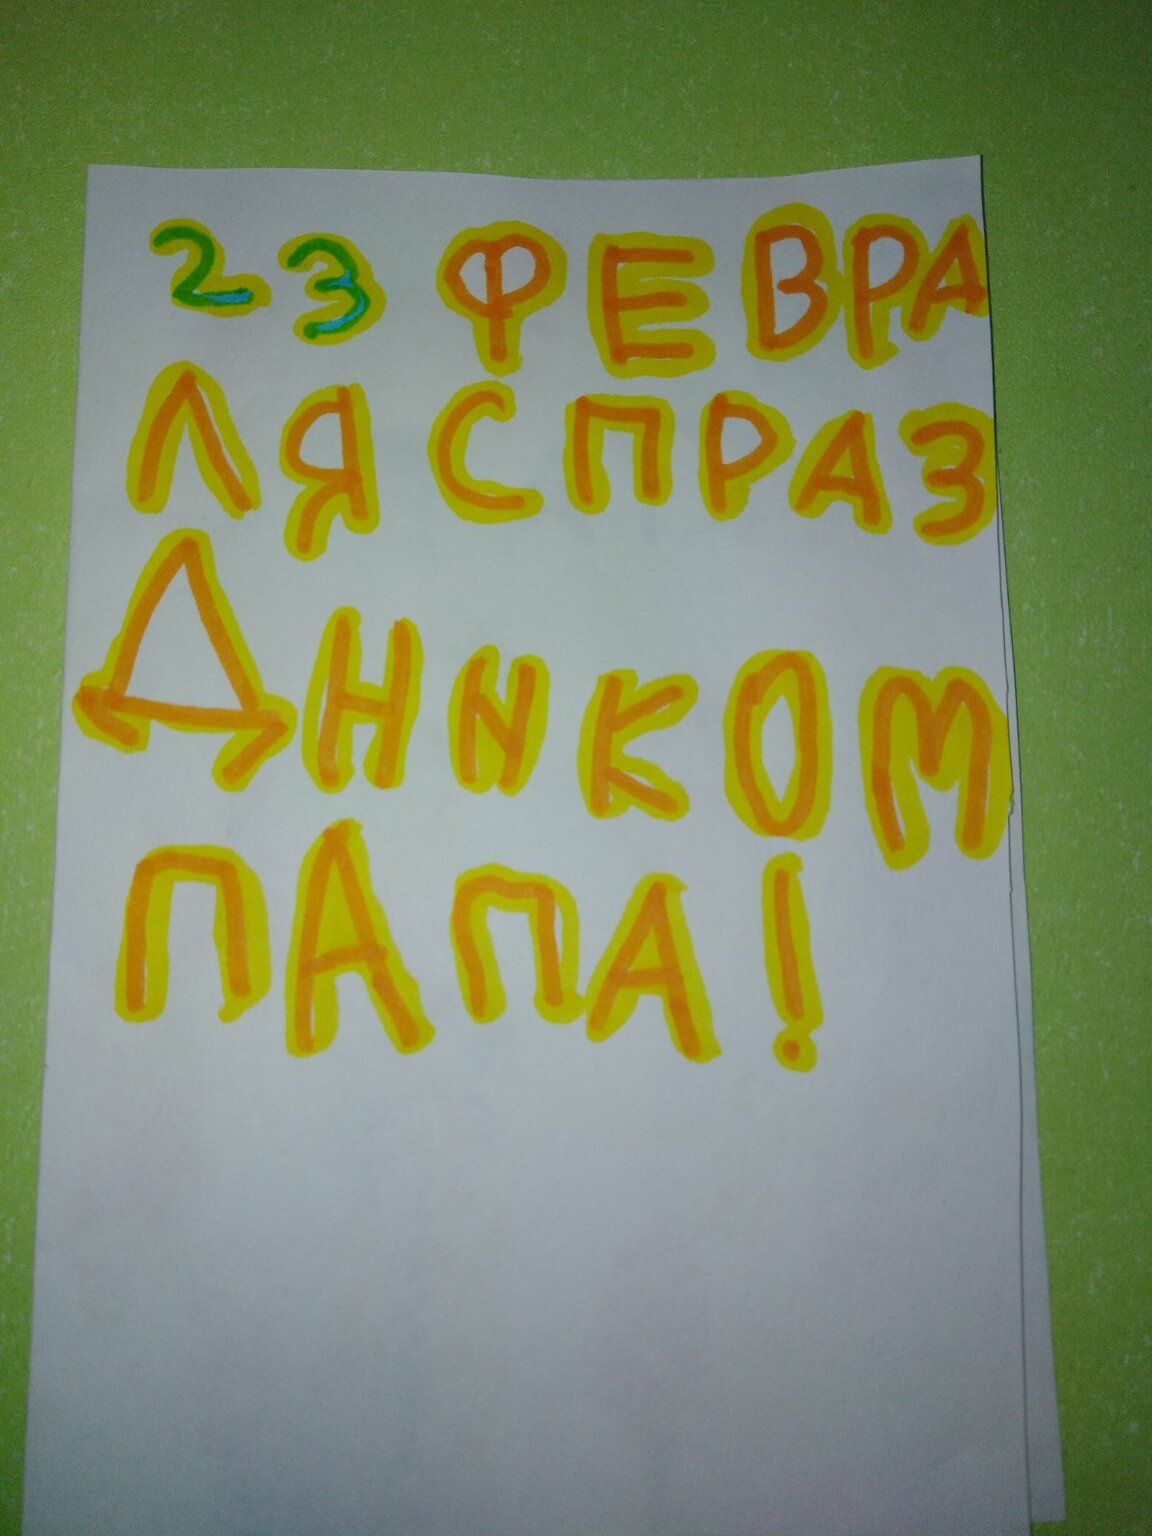 23 ФЕВРА
ЛЯ С ПРАЗ
ДНИКОМ
ПАПА!